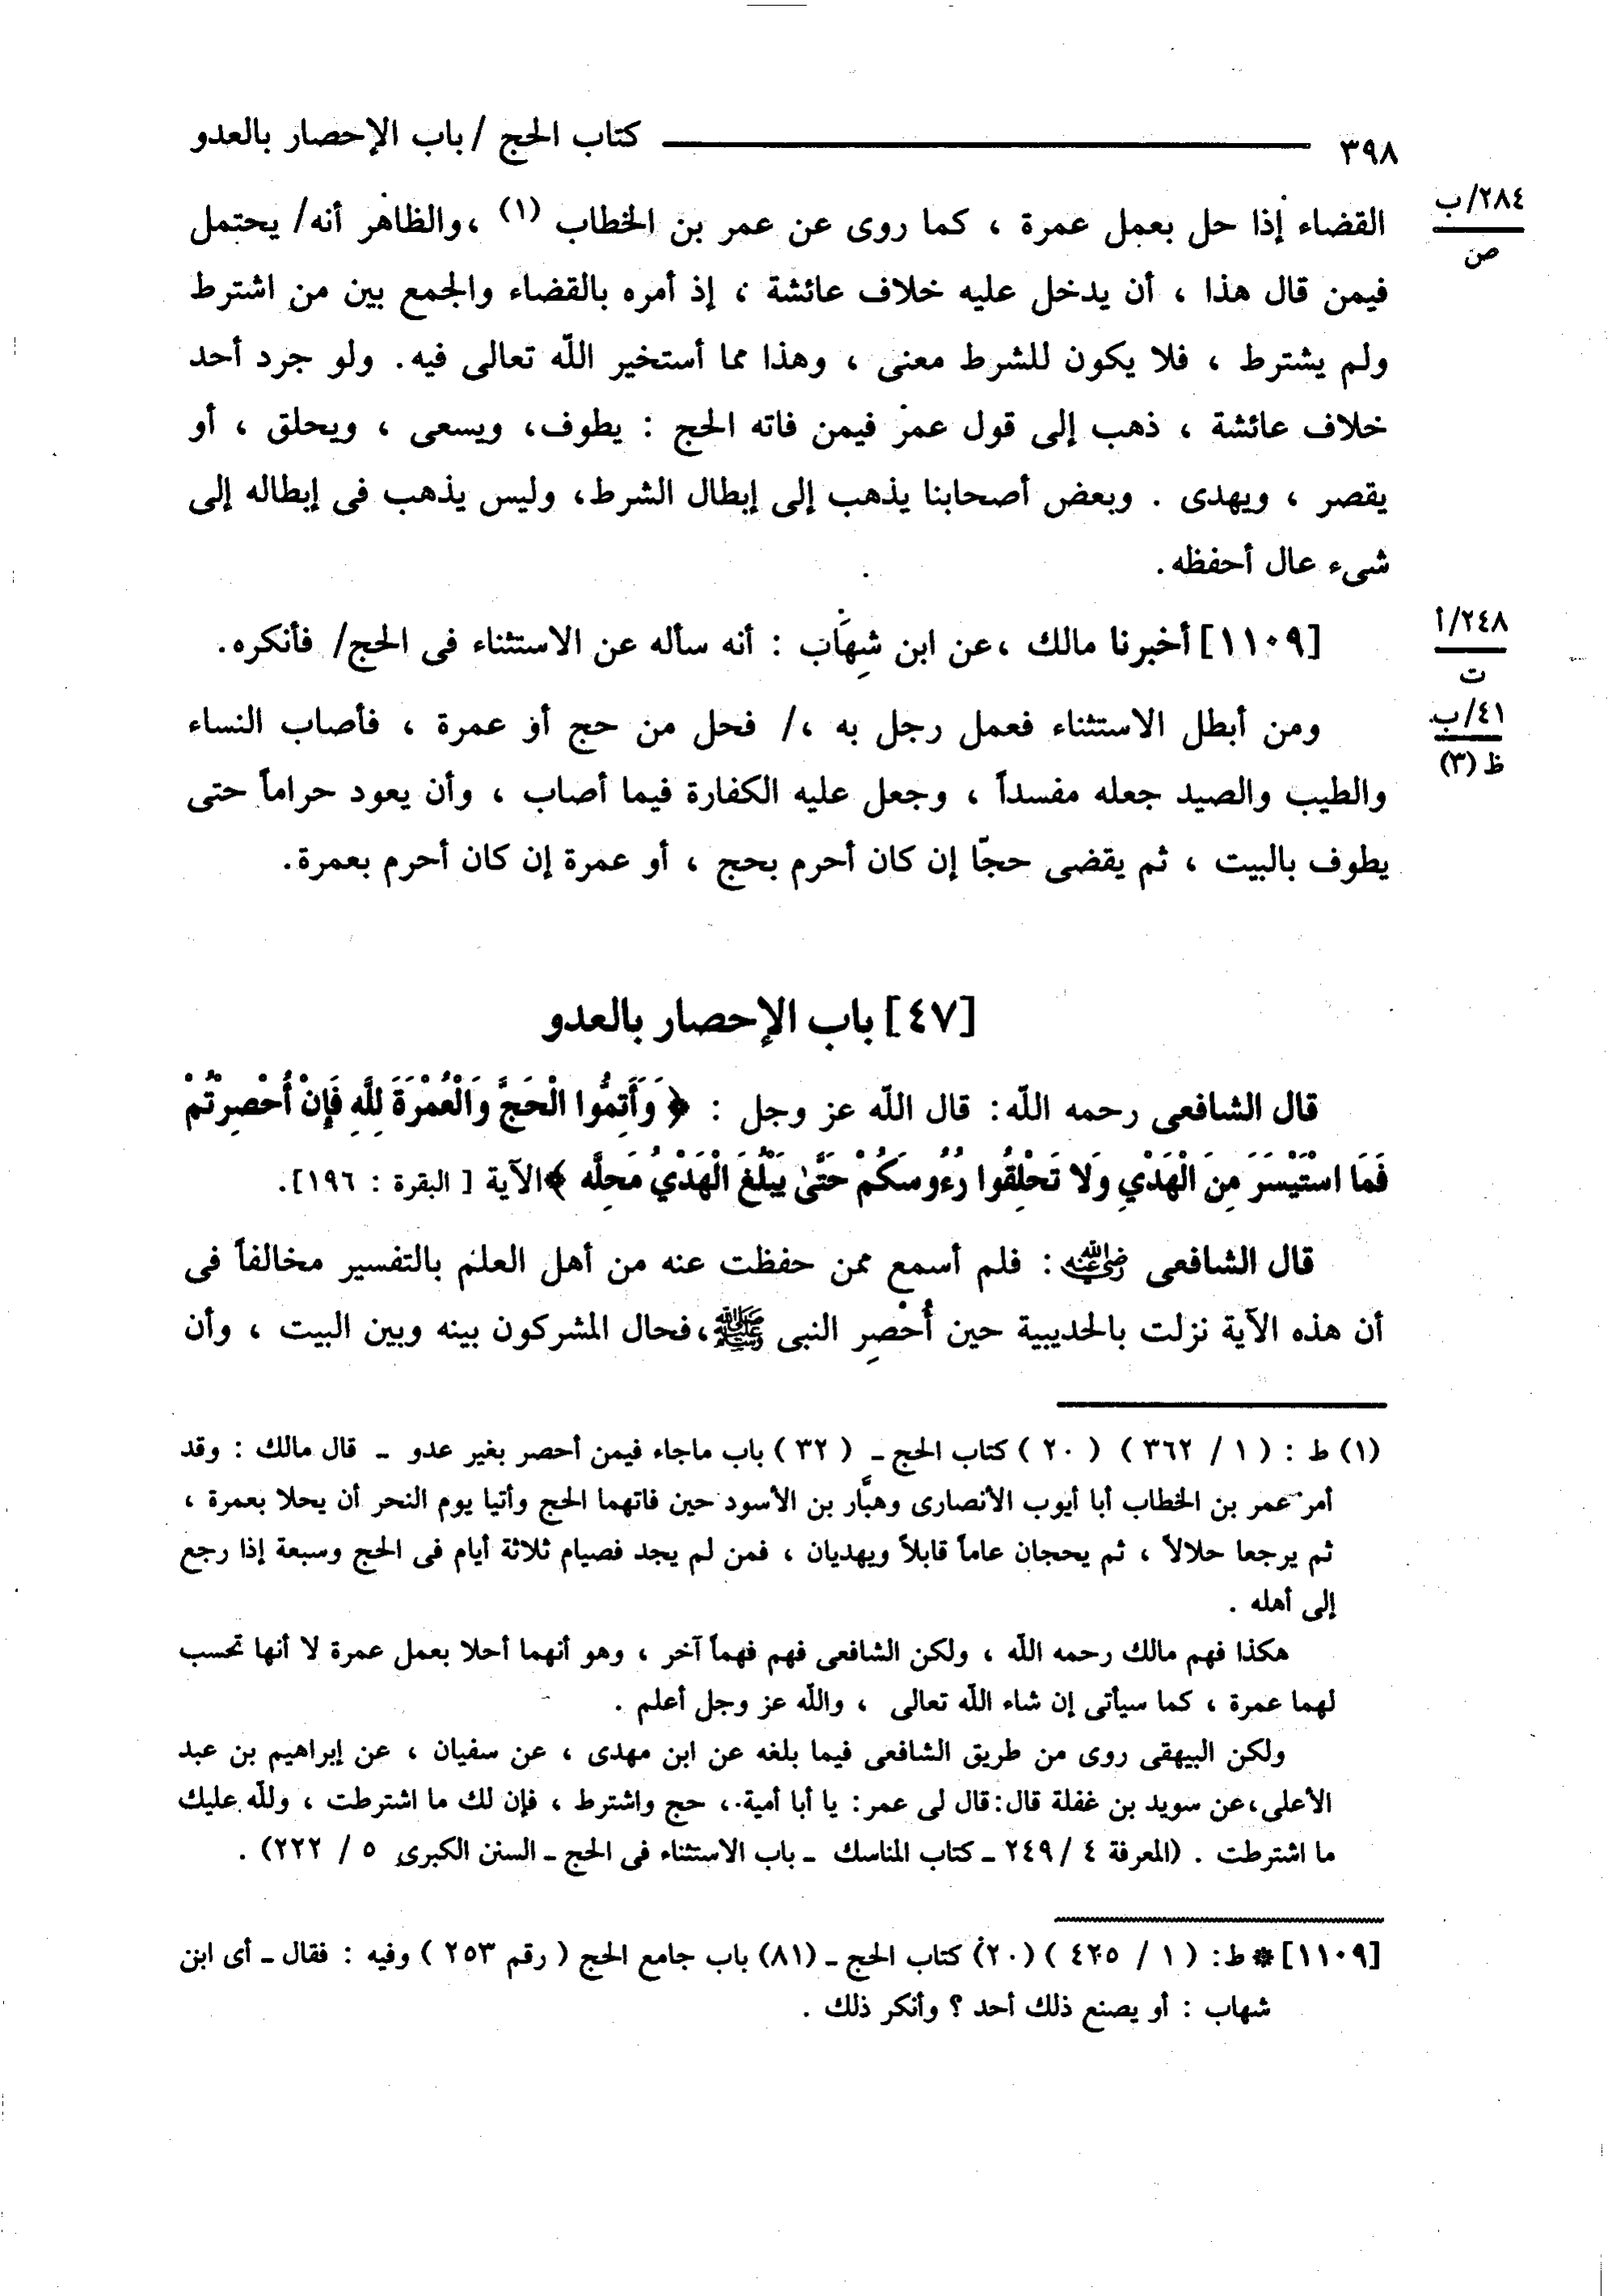 ٣٩٨ كتاب الحج / باب الإحصار بالعدو
٢٨٤/ب
ص
القضاء إذا حل بعمل عمرة ، كما روى عن عمر بن الخطاب (١) ، والظاهر أنه/ يحتمل
فيمن قال هذا ، أن يدخل عليه خلاف عائشة ؛ إذ أمره بالقضاء والجمع بين من اشترط
ولم يشترط ، فلا يكون للشرط معنى ، وهذا مما أستخير اللّه تعالى فيه. ولو جرد أحد
خلاف عائشة ، ذهب إلى قول عمر فيمن فاته الحج : يطوف، ويسعى ، ويحلق ، أو
يقصر ، ويهدى . وبعض أصحابنا يذهب إلى إبطال الشرط، وليس يذهب فى إبطاله إلى
شىء عال أحفظه.
٢٤٨/أ
ت
[١١٠٩] أخبرنا مالك ،عن ابن شِهَاب : أنه سأله عن الاستثناء فى الحج/ فأنكره.
٤١/ب
ظ (٣)
ومن أبطل الاستثناء فعمل رجل به ،/ فحل من حج أو عمرة ، فأصاب النساء
والطيب والصيد جعله مفسداً ، وجعل عليه الكفارة فيما أصاب ، وأن يعود حراماً حتى
يطوف بالبيت ، ثم يقضى حجّا إن كان أحرم بحج ، أو عمرة إن كان أحرم بعمرة.
[٤٧] باب الإحصار بالعدو
قال الشافعى رحمه اللّه: قال اللّه عز وجل : ﴿ وَأَتِمُّوا الْحَجَّ وَالْعُمْرَةَ لِلَّهِ فَإِنْ أُحْصِرْتُمْ
فَمَا اسْتَيْسَرَ مِنَ الْهَدْيِ وَلَا تَحْلِقُوا رُءُوسَكُمْ حَتَّىٰ يَبْلُغَ الْهَدْيُ مَحِلَّه ﴾الآية [ البقرة : ١٩٦].
قال الشافعى رضي الله عنه : فلم أسمع ممن حفظت عنه من أهل العلم بالتفسير مخالفاً فى
أن هذه الآية نزلت بالحديبية حين أُحْصِر النبى ﷺ،فحال المشركون بينه وبين البيت ، وأن
(١) ط : ( ١ / ٣٦٢ ) ( ٢٠ ) كتاب الحج ـ ( ٣٢ ) باب ماجاء فيمن أحصر بغير عدو ـ قال مالك : وقد
أمر عمر بن الخطاب أبا أيوب الأنصارى وهبَّار بن الأسود حين فاتهما الحج وأتيا يوم النحر أن يحلا بعمرة ،
ثم يرجعا حلالاً ، ثم يحجان عاماً قابلاً ويهديان ، فمن لم يجد فصيام ثلاثة أيام فى الحج وسبعة إذا رجع
إلى أهله .
هكذا فهم مالك رحمه اللّه ، ولكن الشافعى فهم فهماً آخر ، وهو أنهما أحلا بعمل عمرة لا أنها تحسب
لهما عمرة ، كما سيأتى إن شاء اللّه تعالى ، واللّه عز وجل أعلم .
ولكن البيهقى روى من طريق الشافعى فيما بلغه عن ابن مهدى ، عن سفيان ، عن إبراهيم بن عبد
الأعلى،عن سويد بن غفلة قال:قال لى عمر: يا أبا أمية، حج واشترط ، فإن لك ما اشترطت ، وللّه عليك
ما اشترطت . (المعرفة ٤ /٢٤٩ ـ كتاب المناسك ـ باب الاستثناء فى الحج ـ السنن الكبرى ٥ / ٢٢٢) .
[١١٠٩] * ط: ( ١ / ٤٢٥ ) (٢٠) كتاب الحج ـ (٨١) باب جامع الحج ( رقم ٢٥٣ ) وفيه : فقال ـ أى ابن
شهاب : أو يصنع ذلك أحد ؟ وأنكر ذلك .